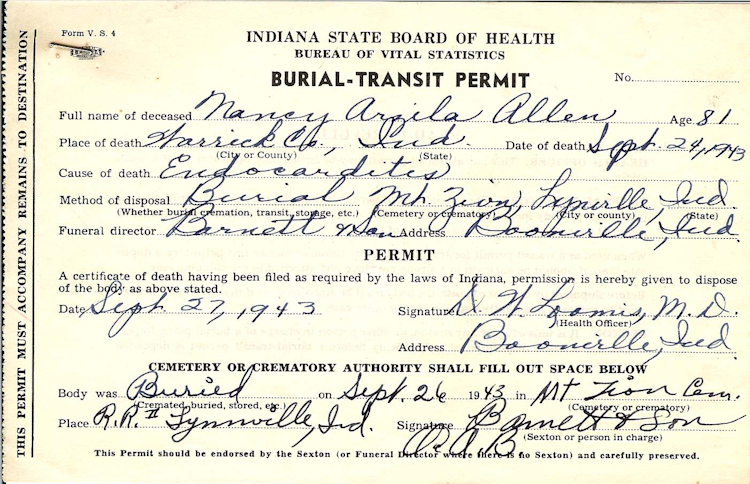 Form V. S. 4
INDIANA STATE BOARD OF HEALTH
BUREAU OF VITAL STATISTICS
BURIAL-TRANSIT PERMIT
No.
Full name of deceased Nancy Arzila Allen Age 81
Place of death Warrick Co., Ind. Date of death Sept. 24, 1943
(City or County) (State)
Cause of death Endocardites
Method of disposal Burial Mt. Zion, Lynville, Ind.
(Whether burial cremation, transit, storage, etc.) (Cemetery or crematory) (City or county) (State)
Funeral director Barnett & Son Address Boonville, Ind.
PERMIT
A certificate of death having been filed as required by the laws of Indiana, permission is hereby given to dispose
of the body as above stated.
Date Sept. 27, 1943 Signature W. Loomis, M.D.
(Health Officer)
Address Boonville, Ind
CEMETERY OR CREMATORY AUTHORITY SHALL FILL OUT SPACE BELOW
Body was Buried on Sept. 26 1943 in Mt Zion Cem.
(Cremated, buried, stored, etc.) (Cemetery or crematory)
Place R.R. II Lynnville, Ind. Signature Barnett & Son
(Sexton or person in charge)
This Permit should be endorsed by the Sexton (or Funeral Director where there is no Sexton) and carefully preserved.
THIS PERMIT MUST ACCOMPANY REMAINS TO DESTINATION